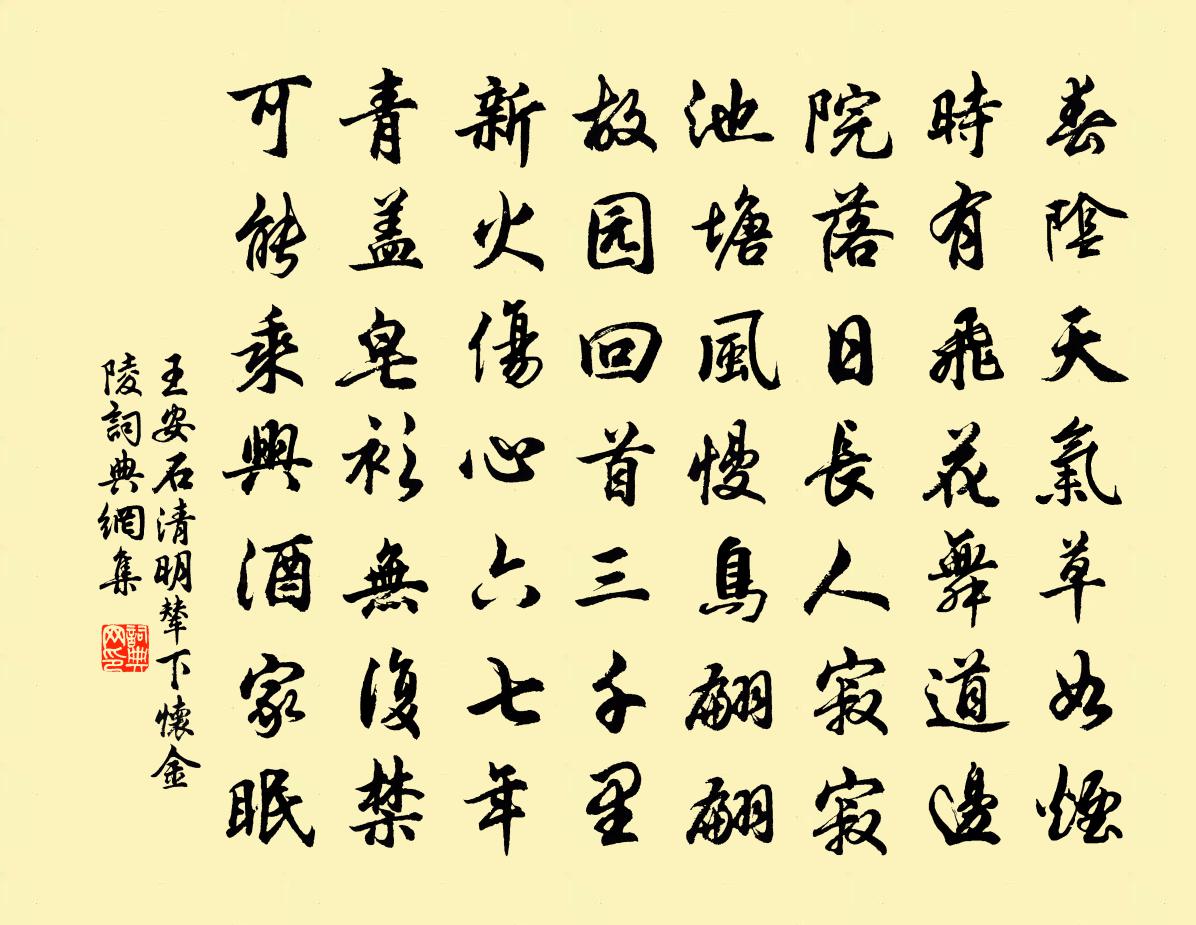 春陰天氣草如煙
時有飛花舞道邊
院落日長人寂寂
池塘風慢鳥翩翩
故园回首三千里
新火傷心六七年
青蓋皂衫無復禁
可能乘興酒家眠
王安石清明輦下懷金
陵詞典網集
詞典
网印